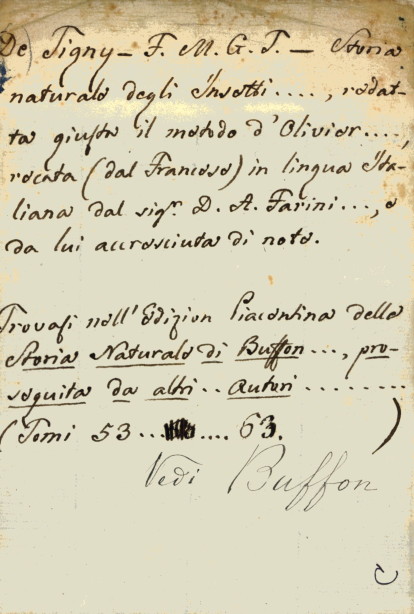 De Tigny – F. M. G. T. – Storia
naturale degli Insetti...., redat-
ta giusta il metodo d'Olivier....,
recata (dal Francese) in lingua Ita-
liana dal sigr. D. A. Farini..., e
da lui accresciuta di note.
Trovasi nell'Edizion Piacentina della
Storia Naturale di Buffon..., pro-
seguita da altri.. Autori.........
(Tomi 53... .... 63. )
Vedi Buffon